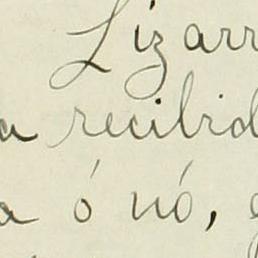 Lizarr
a recibid
a ó nó,